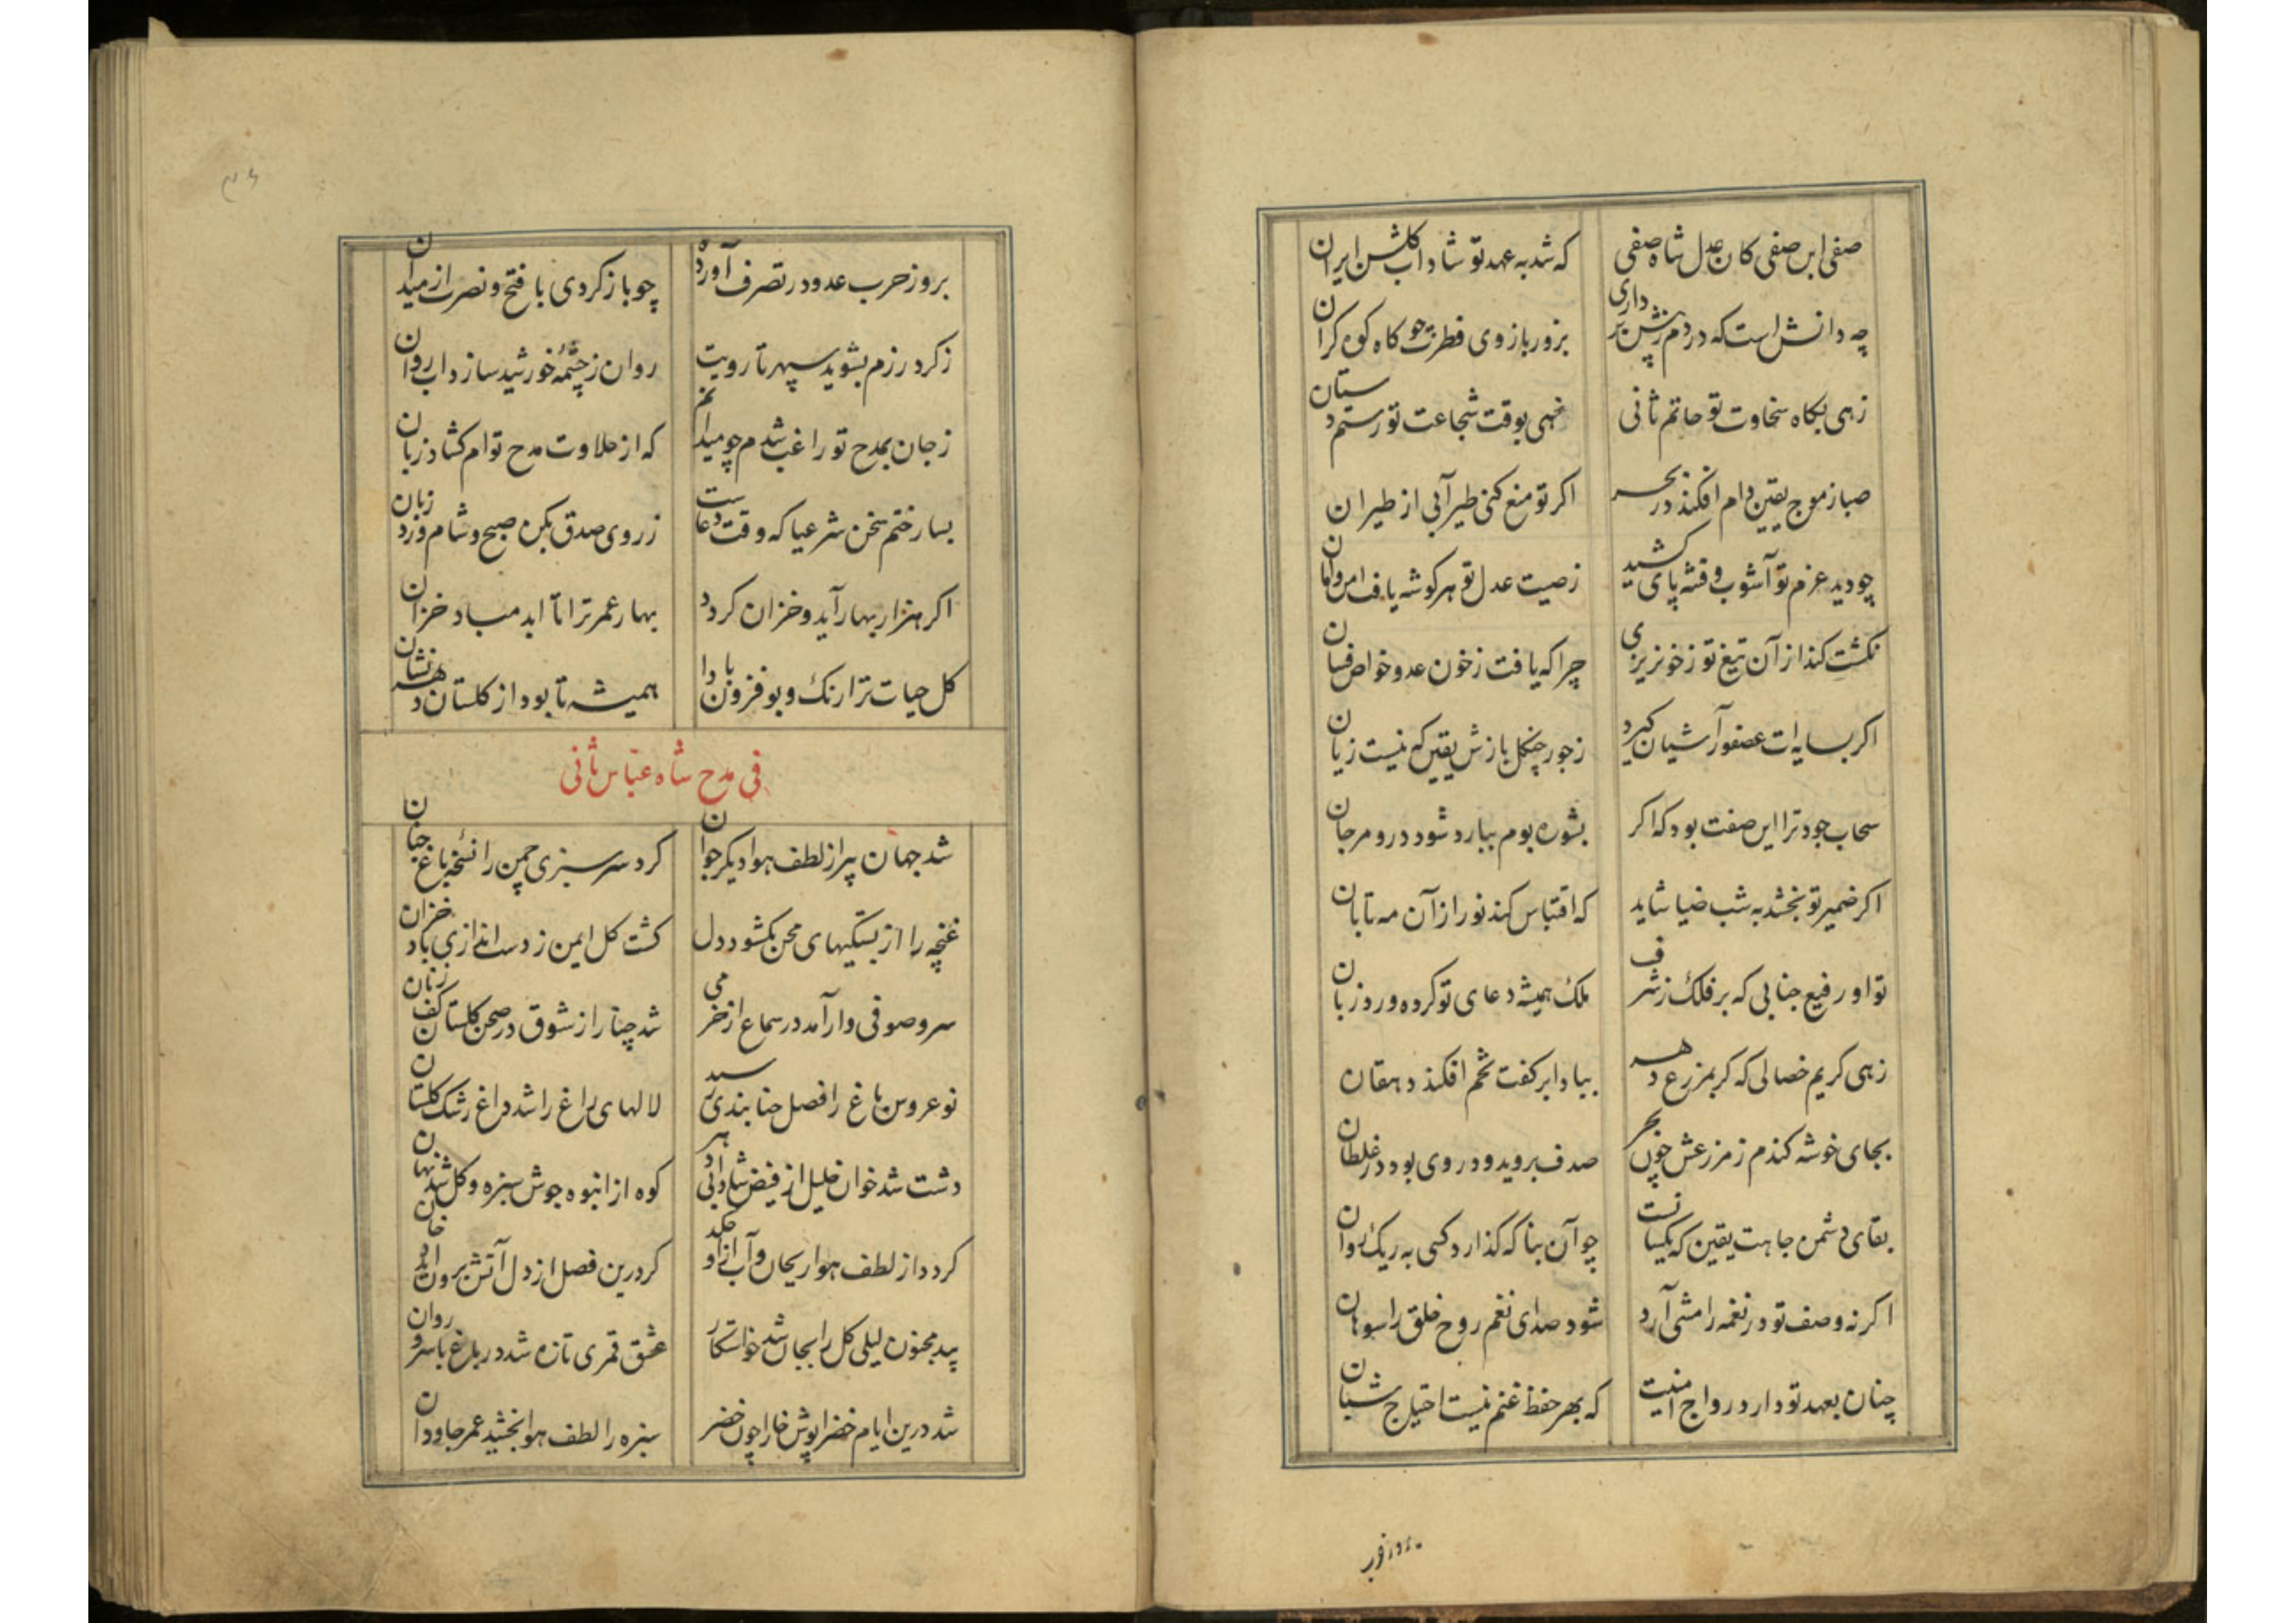 صفی ابن صفی کان عدل شاه صفی که شد به عهد تو شاداب کلشن ایران
چه دانش است که در دم زنش بر داری بزور بازوی فطرت چو کاه کوه کران
زهی بکاه سخاوت تو حاتم ثانی خهی بوقت شجاعت تو رستم دستان
صبا ز موج یقین دام افکند در بحر اکر تو منع کنی طیر آبی از طیران
چو دید عزم تو آشوب و فتنه پای کشید ز صیت عدل تو هر کوشه یافت امن و امان
نکشت کند از آن تیغ تو ز خونریزی چرا که یافت ز خون عدو خواص فسان
اکر بسایه‌ات عصفور آشیان کیرد ز جور چنکل بازش یقین که نیست زیان
سحاب جود ترا این صفت بود که اکر بشوره بوم ببارد شود درو مرجان
اکر ضمیر تو بخشد به شب ضیا شاید که اقتباس کند نور از آن مه تابان
تو او رفیع جنابی که بر فلک ز شرف ملک همیشه دعای تو کرده ورد زبان
زهی کریم خصالی که کر بمزرع دهر بیاد ابر کفت تخم افکند دهقان
بجای خوشه کندم ز مزرعش چون بحر صدف بروید و در وی بود در غلطان
بقای دشمن جاهت یقین که یکسانست چو آن بنا که کذارد کسی به ریک روان
اکر نه وصف تو در نغمه رامشی آرد شود صدای نغم روح خلق را سوهان
چنان بعهد تو دارد رواج امنیت که بهر حفظ غنم نیست احتیاج شبان
بروز حرب
بروز حرب عدو در تصرف آورده چو باز کردی با فتح و نصرت از میدان
ز کرد رزم بشوید سپهر تا رویت روان ز چشمهٔ خورشید سازد آب روان
ز جان بمدح تو راغب شدم چو میدانم که از حلاوت مدح توام کشاد زبان
بسار ختم سخن شرعیا که وقت دعاست ز روی صدق بکن صبح و شام ورد زبان
اکر هزار بهار آید و خزان کردد بهار عمر ترا تا ابد مباد خزان
کل حیات ترا رنک و بو فزون بادا همیشه تا بود از کلستان دهر نشان
فی مدح شاه عباس ثانی
شد جهان پیر از لطف هوا دیکر جوان کرد سرسبزی چمن را نسخه باغ جنان
غنچه را از بستکیهای محن بکشود دل کشت کل ایمن ز دست اندازی باد خزان
سرو صوفی وار آمد در سماع از خرمی شد چنار از شوق در صحن کلستان کف زنان
نوعروس باغ را فصل حنا بندی رسید لالهای راغ را شد داغ رشک کلستان
دشت شد خوان خلیل از فیض شادابی دهر کوه از انبوه جوش سبزه و کل شد نهان
کردد از لطف هوا ریحان و آب از او چکد کر درین فصل از دل آتش برون آید دخان
بید مجنون لیلی کل را بجان شد خواستکار عشق قمری تازه شد در باغ با سرو روان
شد درین ایام خضرا پوش خارا چون خضر سبزه را لطف هوا بخشید عمر جاودان